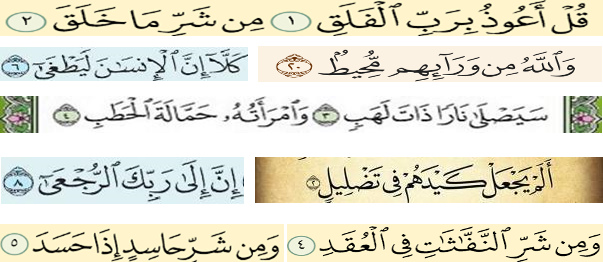 قُلْ أَعُوذُ بِرَبِّ ٱلْفَلَقِ ١ مِن شَرِّ مَا خَلَقَ ٢
وَٱللَّهُ مِن وَرَآئِهِم مُّحِيطٌۢ ٢٠ كَلَّآ إِنَّ ٱلْإِنسَٰنَ لَيَطْغَىٰٓ ٦
سَيَصْلَىٰ نَارًا ذَاتَ لَهَبٍ ٣ وَٱمْرَأَتُهُۥ حَمَّالَةَ ٱلْحَطَبِ ٤
أَلَمْ يَجْعَلْ كَيْدَهُمْ فِى تَضْلِيلٍ ٢ إِنَّ إِلَىٰ رَبِّكَ ٱلرُّجْعَىٰٓ ٨
وَمِن شَرِّ ٱلنَّفَّٰثَٰتِ فِى ٱلْعُقَدِ ٤ وَمِن شَرِّ حَاسِدٍ إِذَا حَسَدَ ٥